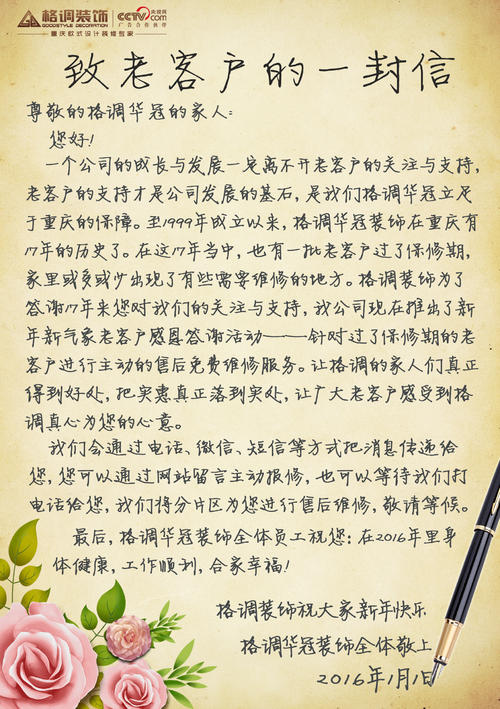 格调装饰
GOODSTYLE DECORATION
CCTV.com 央视网
广告合作伙伴
重庆欧式设计装修专家
致老客户的一封信
尊敬的格调华冠的家人:
您好!
一个公司的成长与发展一定离不开老客户的关注与支持,
老客户的支持才是公司发展的基石,是我们格调华冠立足
于重庆的保障。至1999年成立以来,格调华冠装饰在重庆有
17年的历史了。在这17年当中,也有一批老客户过了保修期,
家里或多或少出现了有些需要维修的地方。格调装饰为了
答谢17年来您对我们的关注与支持,我公司现在推出了新
年新气象老客户感恩答谢活动——针对过了保修期的老
客户进行主动的售后免费维修服务。让格调的家人们真正
得到好处,把实惠真正落到实处,让广大老客户感受到格
调真心为您的心意。
我们会通过电话、微信、短信等方式把消息传递给
您,您可以通过网站留言主动报修,也可以等待我们打
电话给您,我们将分片区为您进行售后维修,敬请等候。
最后,格调华冠装饰全体员工祝您:在2016年里身
体健康,工作顺利,合家幸福!
格调装饰祝大家新年快乐
格调华冠装饰全体敬上
2016年1月1日